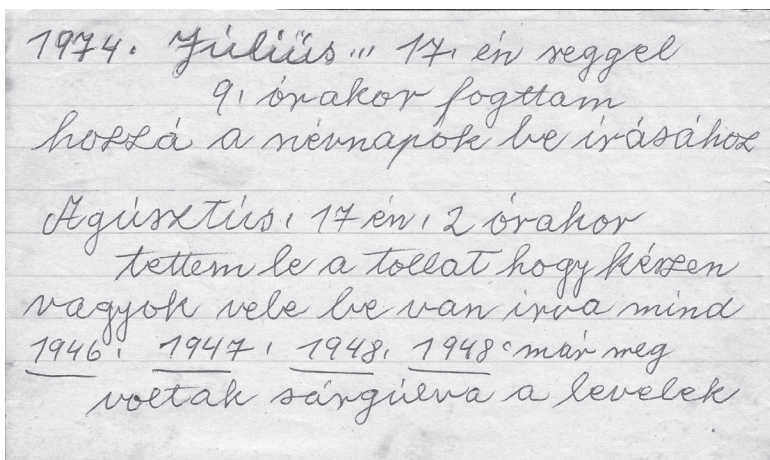 1974. Július ,,, 17. én reggel
9, órakor fogttam
hozzá a névnapok be irásához
Agúsztús, 17 én, 2 órakor
tettem le a tollat hogy készen
vagyok vele be van irva mind
1946, 1947, 1948, 1948 már meg
voltak sárgúlva a levelek